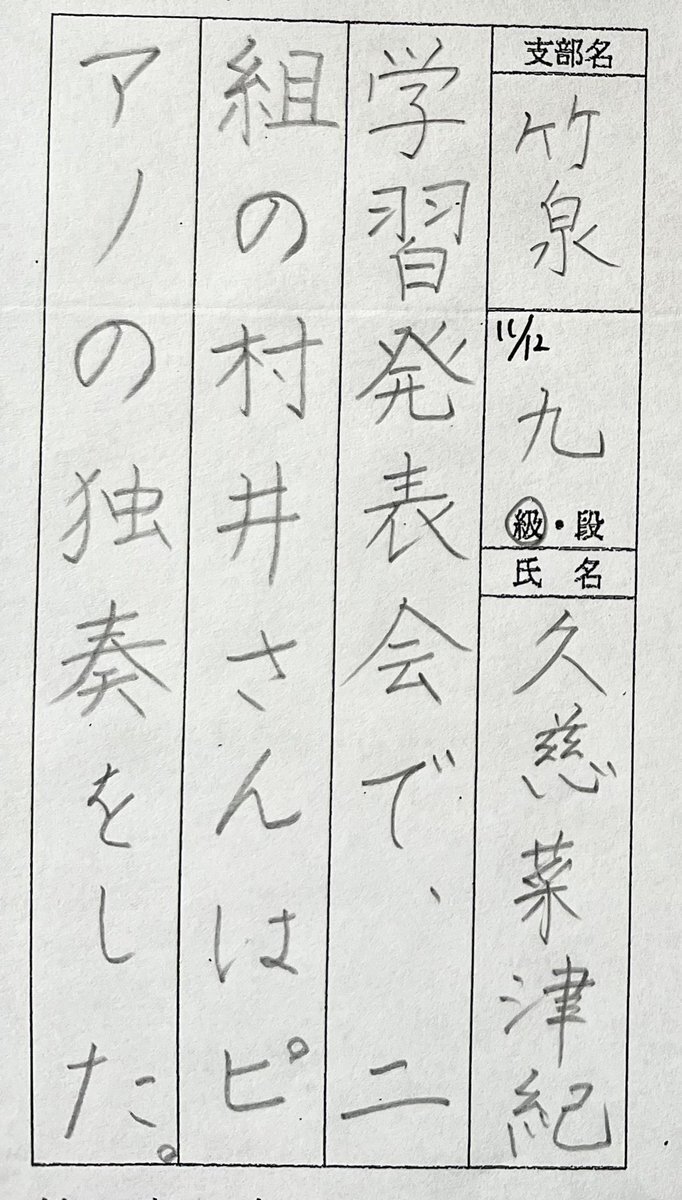 支部名
竹泉
11/12
九
級・段
氏名
久慈菜津紀
学習発表会で、二
組の村井さんはピ
アノの独奏をした。